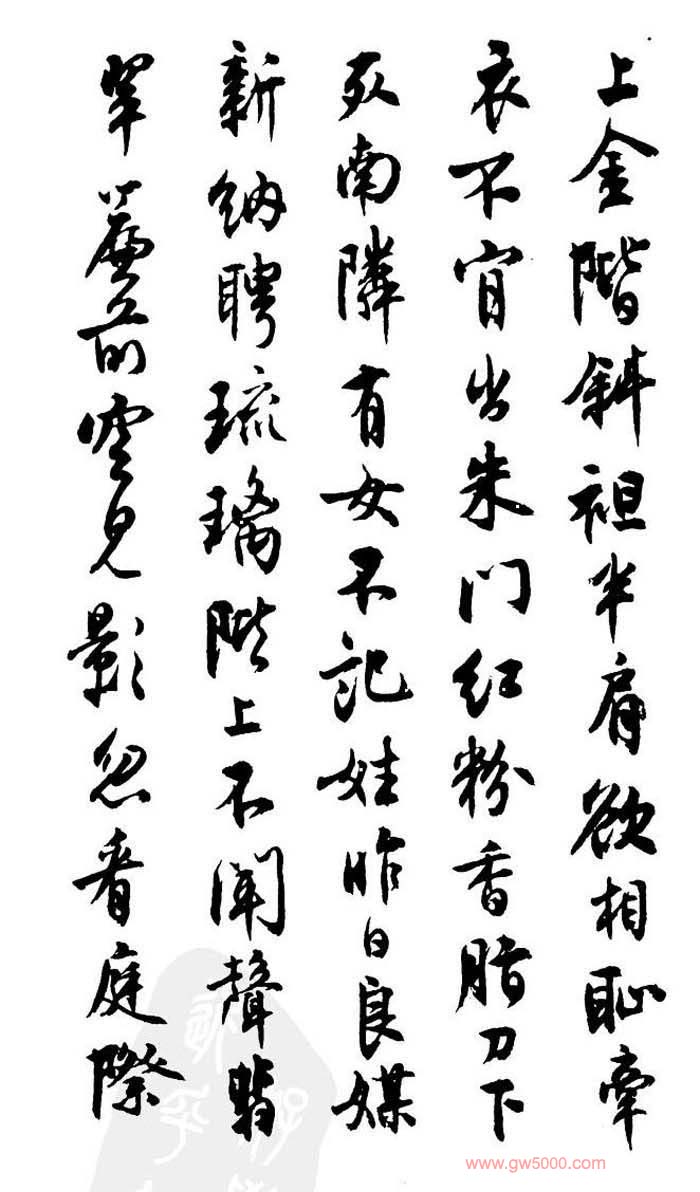 上金階斜袒半肩欲相恥牽
衣不肯出朱門紅粉香脂刀下
死南隣有女不記姓昨日良媒
新納聘琉璃階上不聞聲翡
翠簾前空見影忽看庭際
www.gw5000.com